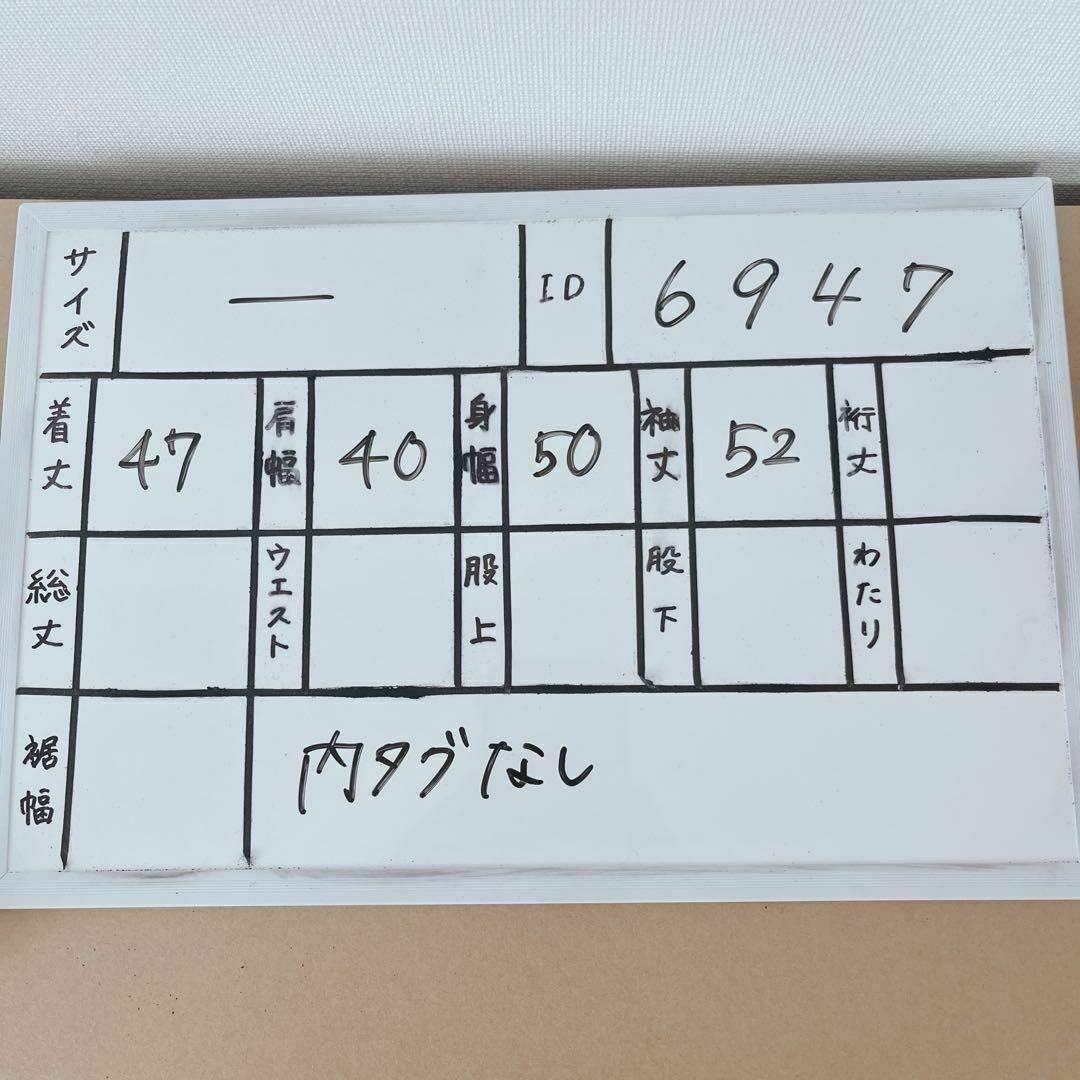 サイズ — ID 6947
着丈 47 肩幅 40 身幅 50 袖丈 52 裄丈
総丈 ウエスト 股上 股下 わたり
裾幅 内タグなし